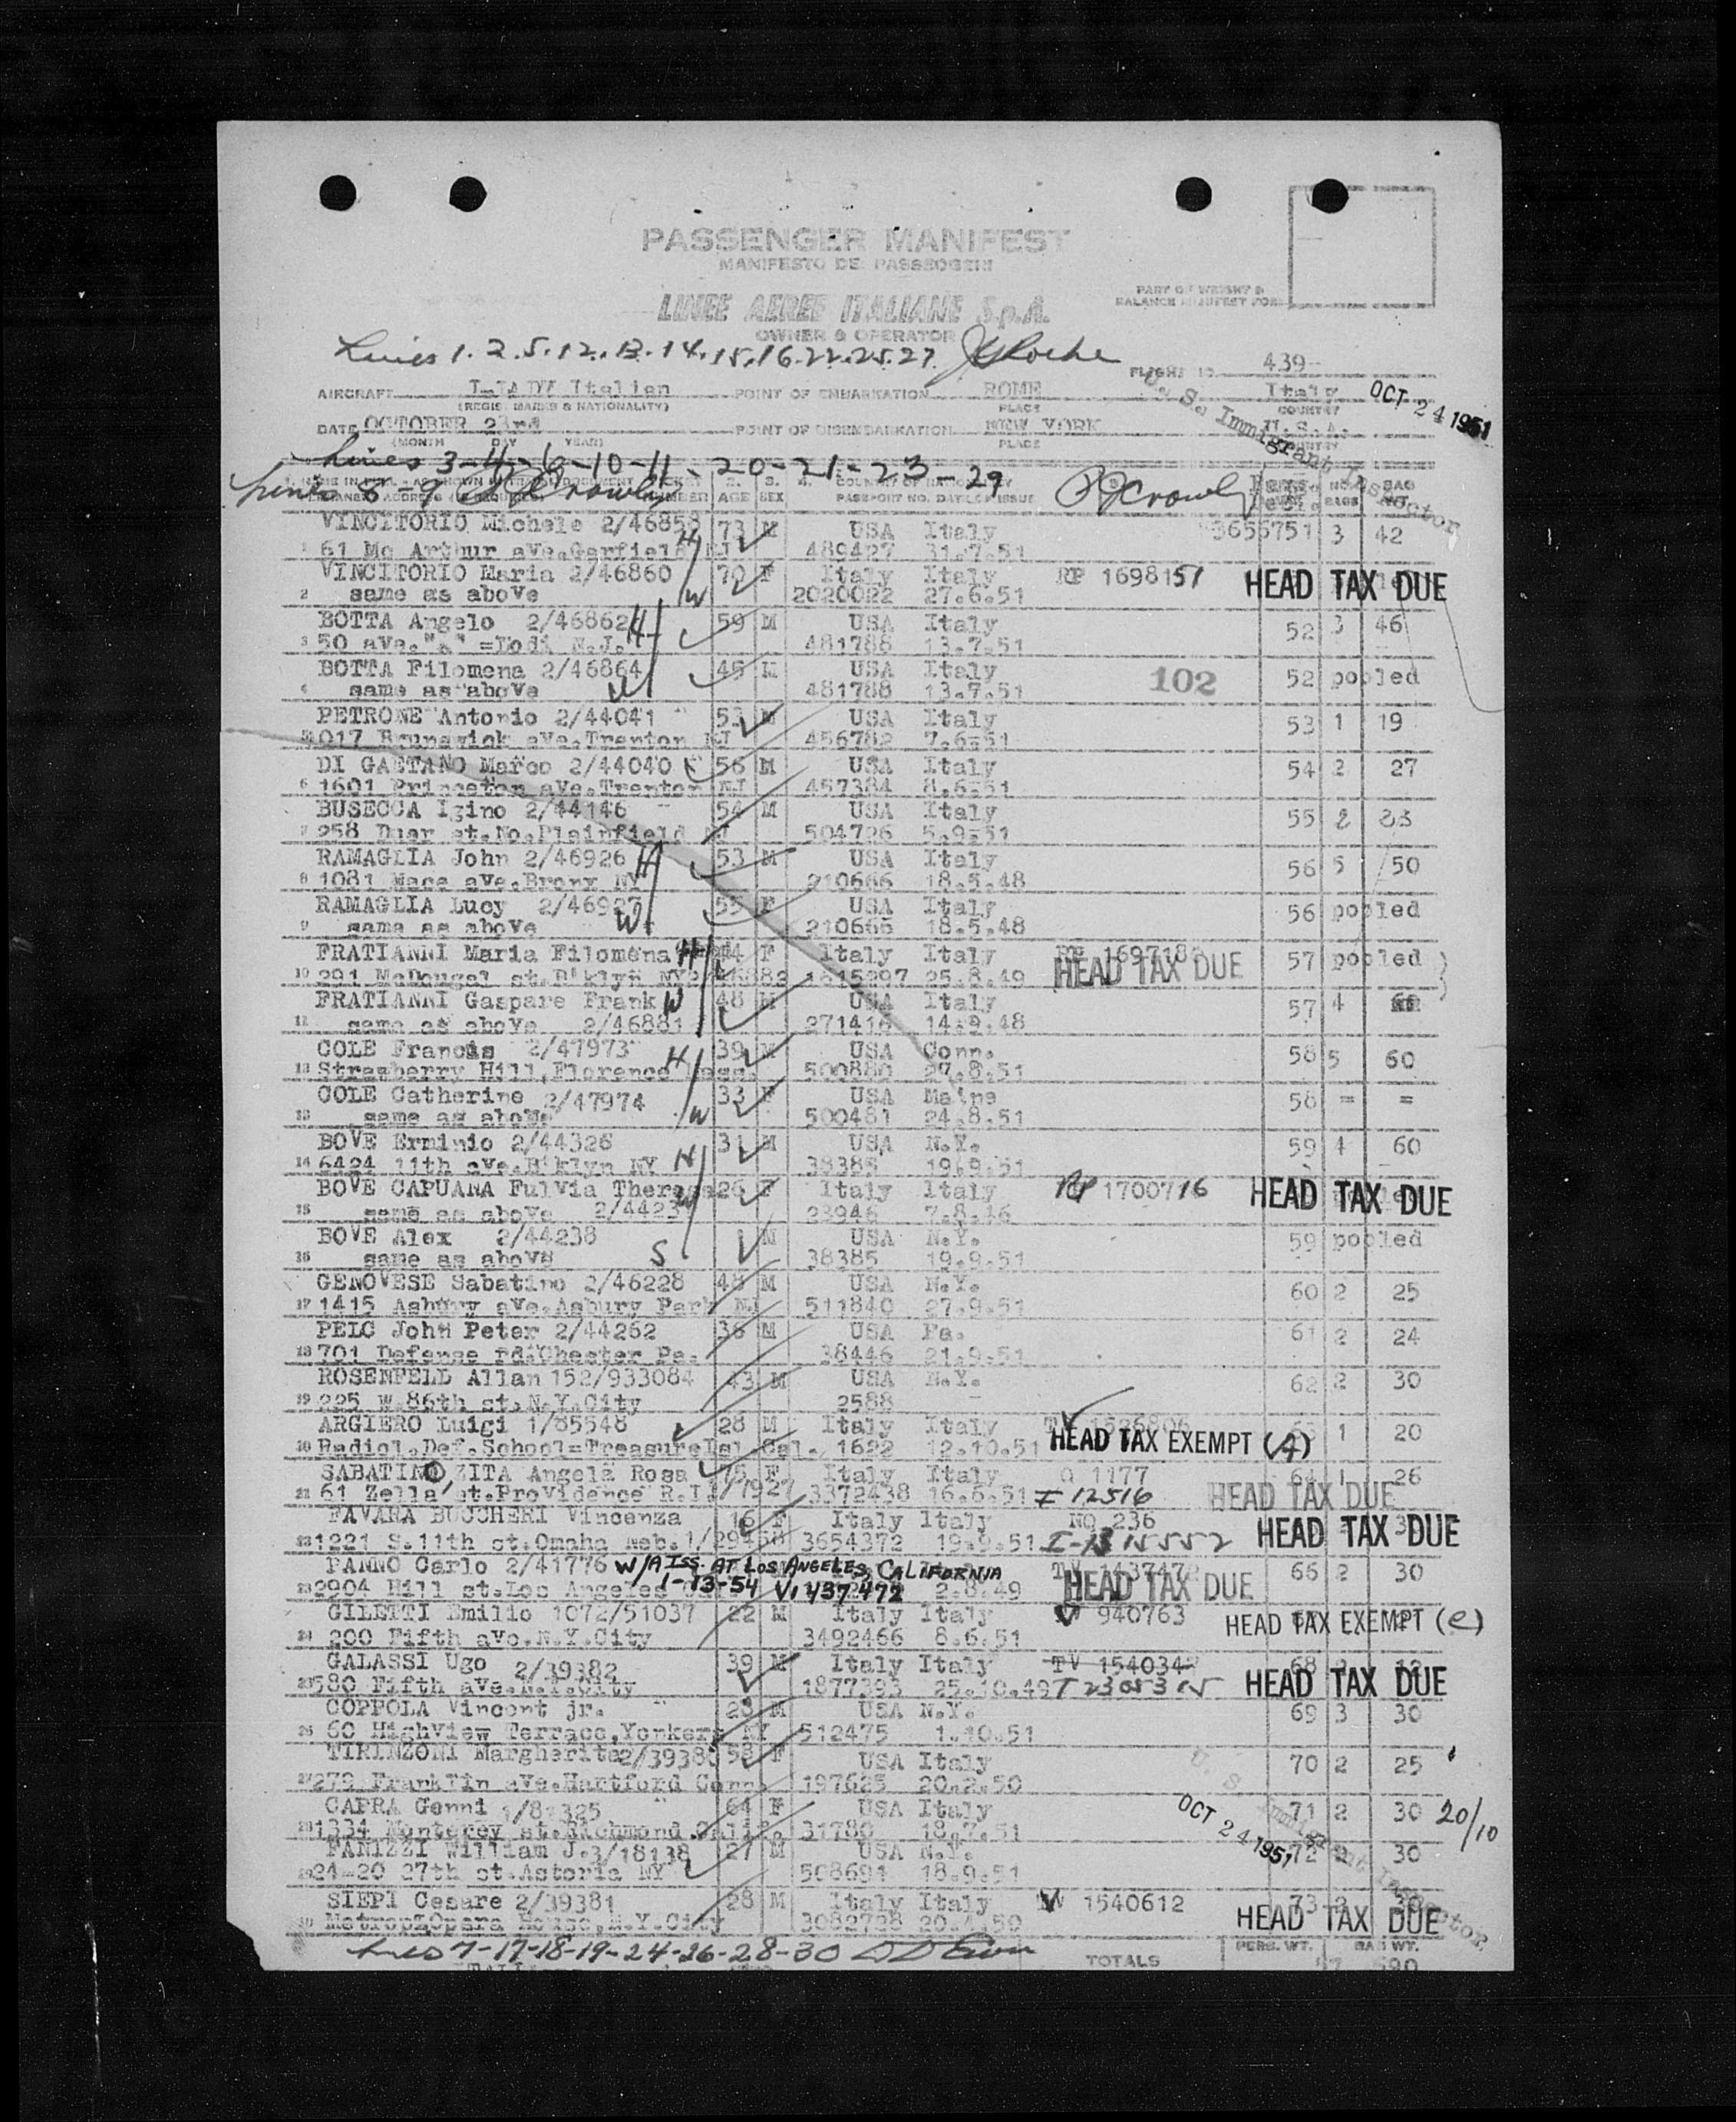 PASSENGER MANIFEST
MANIFESTO DEI PASSEGGERI
LINEE AEREE ITALIANE S.p.A.
OWNER & OPERATOR
PART OF WEIGHT &
BALANCE MANIFEST FOR
Lines 1.2.5.12.13.14.15.16.22.25.27. Roche
FLIGHT NO. 439
AIRCRAFT Italian POINT OF EMBARKATION ROME Italy
(REGIS. MARKS & NATIONALITY) PLACE COUNTRY
OCT 24 1951
U. S. Immigrant Inspector
DATE OCTOBER 23rd POINT OF DISEMBARKATION NEW YORK U.S.A.
(MONTH DAY YEAR) PLACE
Lines 3-4-6-10-11-20-21-23-29
Lines 8-9 Crowley
AGE SEX PASSPORT NO. DATE OF ISSUE
VINCITORIO Michele 2/46858 73 M USA Italy 3655751 3 42
1 61 Mc Arthur ave.Garfield NJ 489427 31.7.51
VINCITORIO Maria 2/46860 70 F Italy Italy RP 1698151 HEAD TAX DUE
2 same as above 2020022 27.6.51
BOTTA Angelo 2/46862 H 59 M USA Italy 52 3 46
3 50 ave. =Lodi N.J. 481788 13.7.51
BOTTA Filomena 2/46864 45 M USA Italy 102 52 pooled
4 same as above W 481788 13.7.51
PETRONE Antonio 2/44041 53 M USA Italy 53 1 19
1017 Brunswick ave.Trenton NJ 456782 7.6.51
DI GAETANO Marco 2/44040 56 M USA Italy 54 2 27
6 1601 Princeton ave.Trenton NJ 457384 8.6.51
BUSECCA Igino 2/44146 54 M USA Italy 55 2 23
7 258 Duer st.No.Plainfield NJ 504726 5.9.51
RAMAGLIA John 2/46926 H 53 M USA Italy 56 5 50
8 1081 Mace ave.Bronx NY 210666 18.5.48
RAMAGLIA Lucy 2/46927 W 55 F USA Italy 56 pooled
9 same as above 210665 18.5.48
FRATIANNI Maria Filomena H 44 F Italy Italy RP 1697182 57 pooled
10 291 McDougal st.B'klyn NY 2/46882 1815297 25.8.49 HEAD TAX DUE
FRATIANNI Gaspare Frank W 48 M USA Italy 57 4
11 same as above 2/46881 271416 14.9.48
COLE Francis 2/47973 H 39 M USA Conn. 58 5 60
12 Strawberry Hill,Florence Mass. 500880 27.8.51
COLE Catherine 2/47974 33 F USA Maine 58 = =
13 same as above W 500481 24.8.51
BOVE Erminio 2/44326 31 M USA N.Y. 59 4 60
14 6424 11th ave.B'klyn NY H 38385 19.9.51
BOVE CAPUANA Fulvia Theresa 26 F Italy Italy RP 1700716 HEAD TAX DUE
15 same as above 2/4423 W 23946 7.8.46
BOVE Alex 2/44238 1 M USA N.Y. 59 pooled
16 same as above S 38385 19.9.51
GENOVESE Sabatino 2/46228 48 M USA N.Y. 60 2 25
17 1415 Asbury ave.Asbury Park NJ 511840 27.9.51
PELC John Peter 2/44262 36 M USA Pa. 61 2 24
18 701 Defense rd.Chester Pa. 38446 21.9.51
ROSENFELD Allan 152/933084 43 M USA N.Y. 62 2 30
19 225 W.86th st.N.Y.City 2588
ARGIERO Luigi 1/85548 28 M Italy Italy TV 1526806 63 1 20
20 Radiol.Def.School=Treasure Isl Cal. 1622 12.10.51 HEAD TAX EXEMPT (A)
SABATINO ZITA Angela Rosa 75 F Italy Italy Q 1177 64 1 26
21 61 Zella st.Providence R.I. 3372438 16.6.51 I-12516 HEAD TAX DUE
FAVARA BUCCHERI Vincenza 16 F Italy Italy NQ 236
22 1221 S.11th st.Omaha Neb. 1/29458 3654372 19.9.51 I-15552 HEAD TAX DUE
PANNO Carlo 2/41776 W/A ISS. AT LOS ANGELES, CALIFORNIA 66 2 30
23 2904 Hill st.Los Angeles 1-13-54 V1437472 2.8.49 HEAD TAX DUE
GILETTI Emilio 1072/51037 22 M Italy Italy 940763 HEAD TAX EXEMPT (e)
24 200 Fifth ave.N.Y.City 3492466 8.6.51
GALASSI Ugo 2/39382 39 M Italy Italy TV 1540347 68
25 580 Fifth ave.N.Y.City 1877393 25.10.49 T2305315 HEAD TAX DUE
COPPOLA Vincent jr. 28 M USA N.Y. 69 3 30
26 60 Highview Terrace,Yonkers NY 512475 1.10.51
TIRINZONI Margherita 2/39380 58 F USA Italy 70 2 25
27 279 Franklin ave.Hartford Conn. 197625 20.2.50
CAPRA Genni 1/81325 64 F USA Italy 71 2 30 20/10
28 1334 Monterey st.Richmond Calif. 31780 18.7.51
OCT 24 1951
U. S. Immigrant Inspector
PANIZZI William J. 3/18138 27 M USA N.Y. 72 2 30
29 24-20 27th st.Astoria NY 508691 18.9.51
SIEPI Cesare 2/39381 28 M Italy Italy TV 1540612 73 2 30
30 Metrop.Opera House,N.Y.City 3082728 20.4.50 HEAD TAX DUE
Lines 7-17-18-19-24-26-28-30
TOTALS PERS. WT. BAG WT.